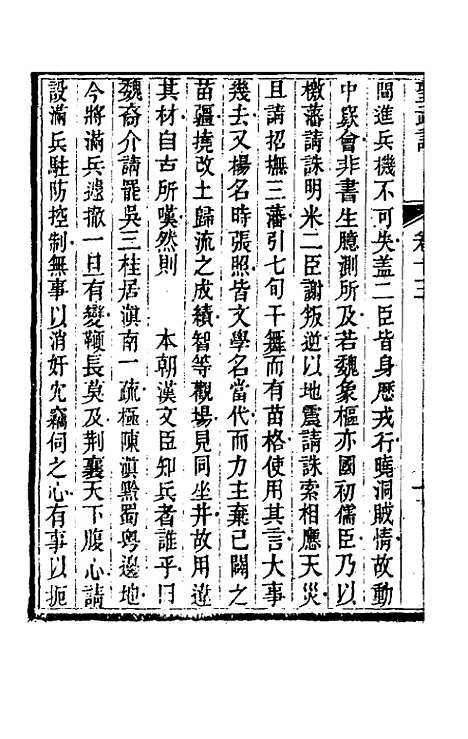 聖武記
卷十三
間進兵機不可失蓋二臣皆身歷戎行曉洞賊情故動
中窾會非書生臆測所及若魏象樞亦國初儒臣乃以
檄藩請誅明米二臣謝叛逆以地震請誅索相應天災
且請招撫三藩引七旬干舞而有苗格使用其言大事
幾去又楊名時張照皆文學名當代而力主棄已闢之
苗疆撓改土歸流之成績智等觀場見同坐井故用違
其材自古所嘆然則 本朝漢文臣知兵者誰乎曰
魏裔介請罷吳三桂居滇南一疏極陳滇黔蜀粤邊地
今將滿兵遽撤一旦有變鞭長莫及荆襄天下腹心請
設滿兵駐防控制無事以消奸宄竊伺之心有事以扼